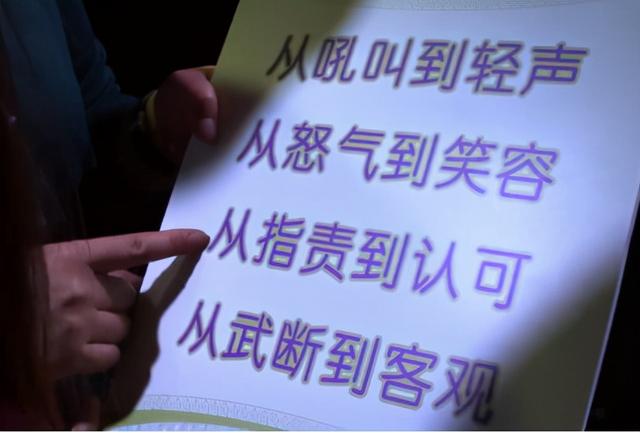 从吼叫到轻声
从怒气到笑容
从指责到认可
从武断到客观